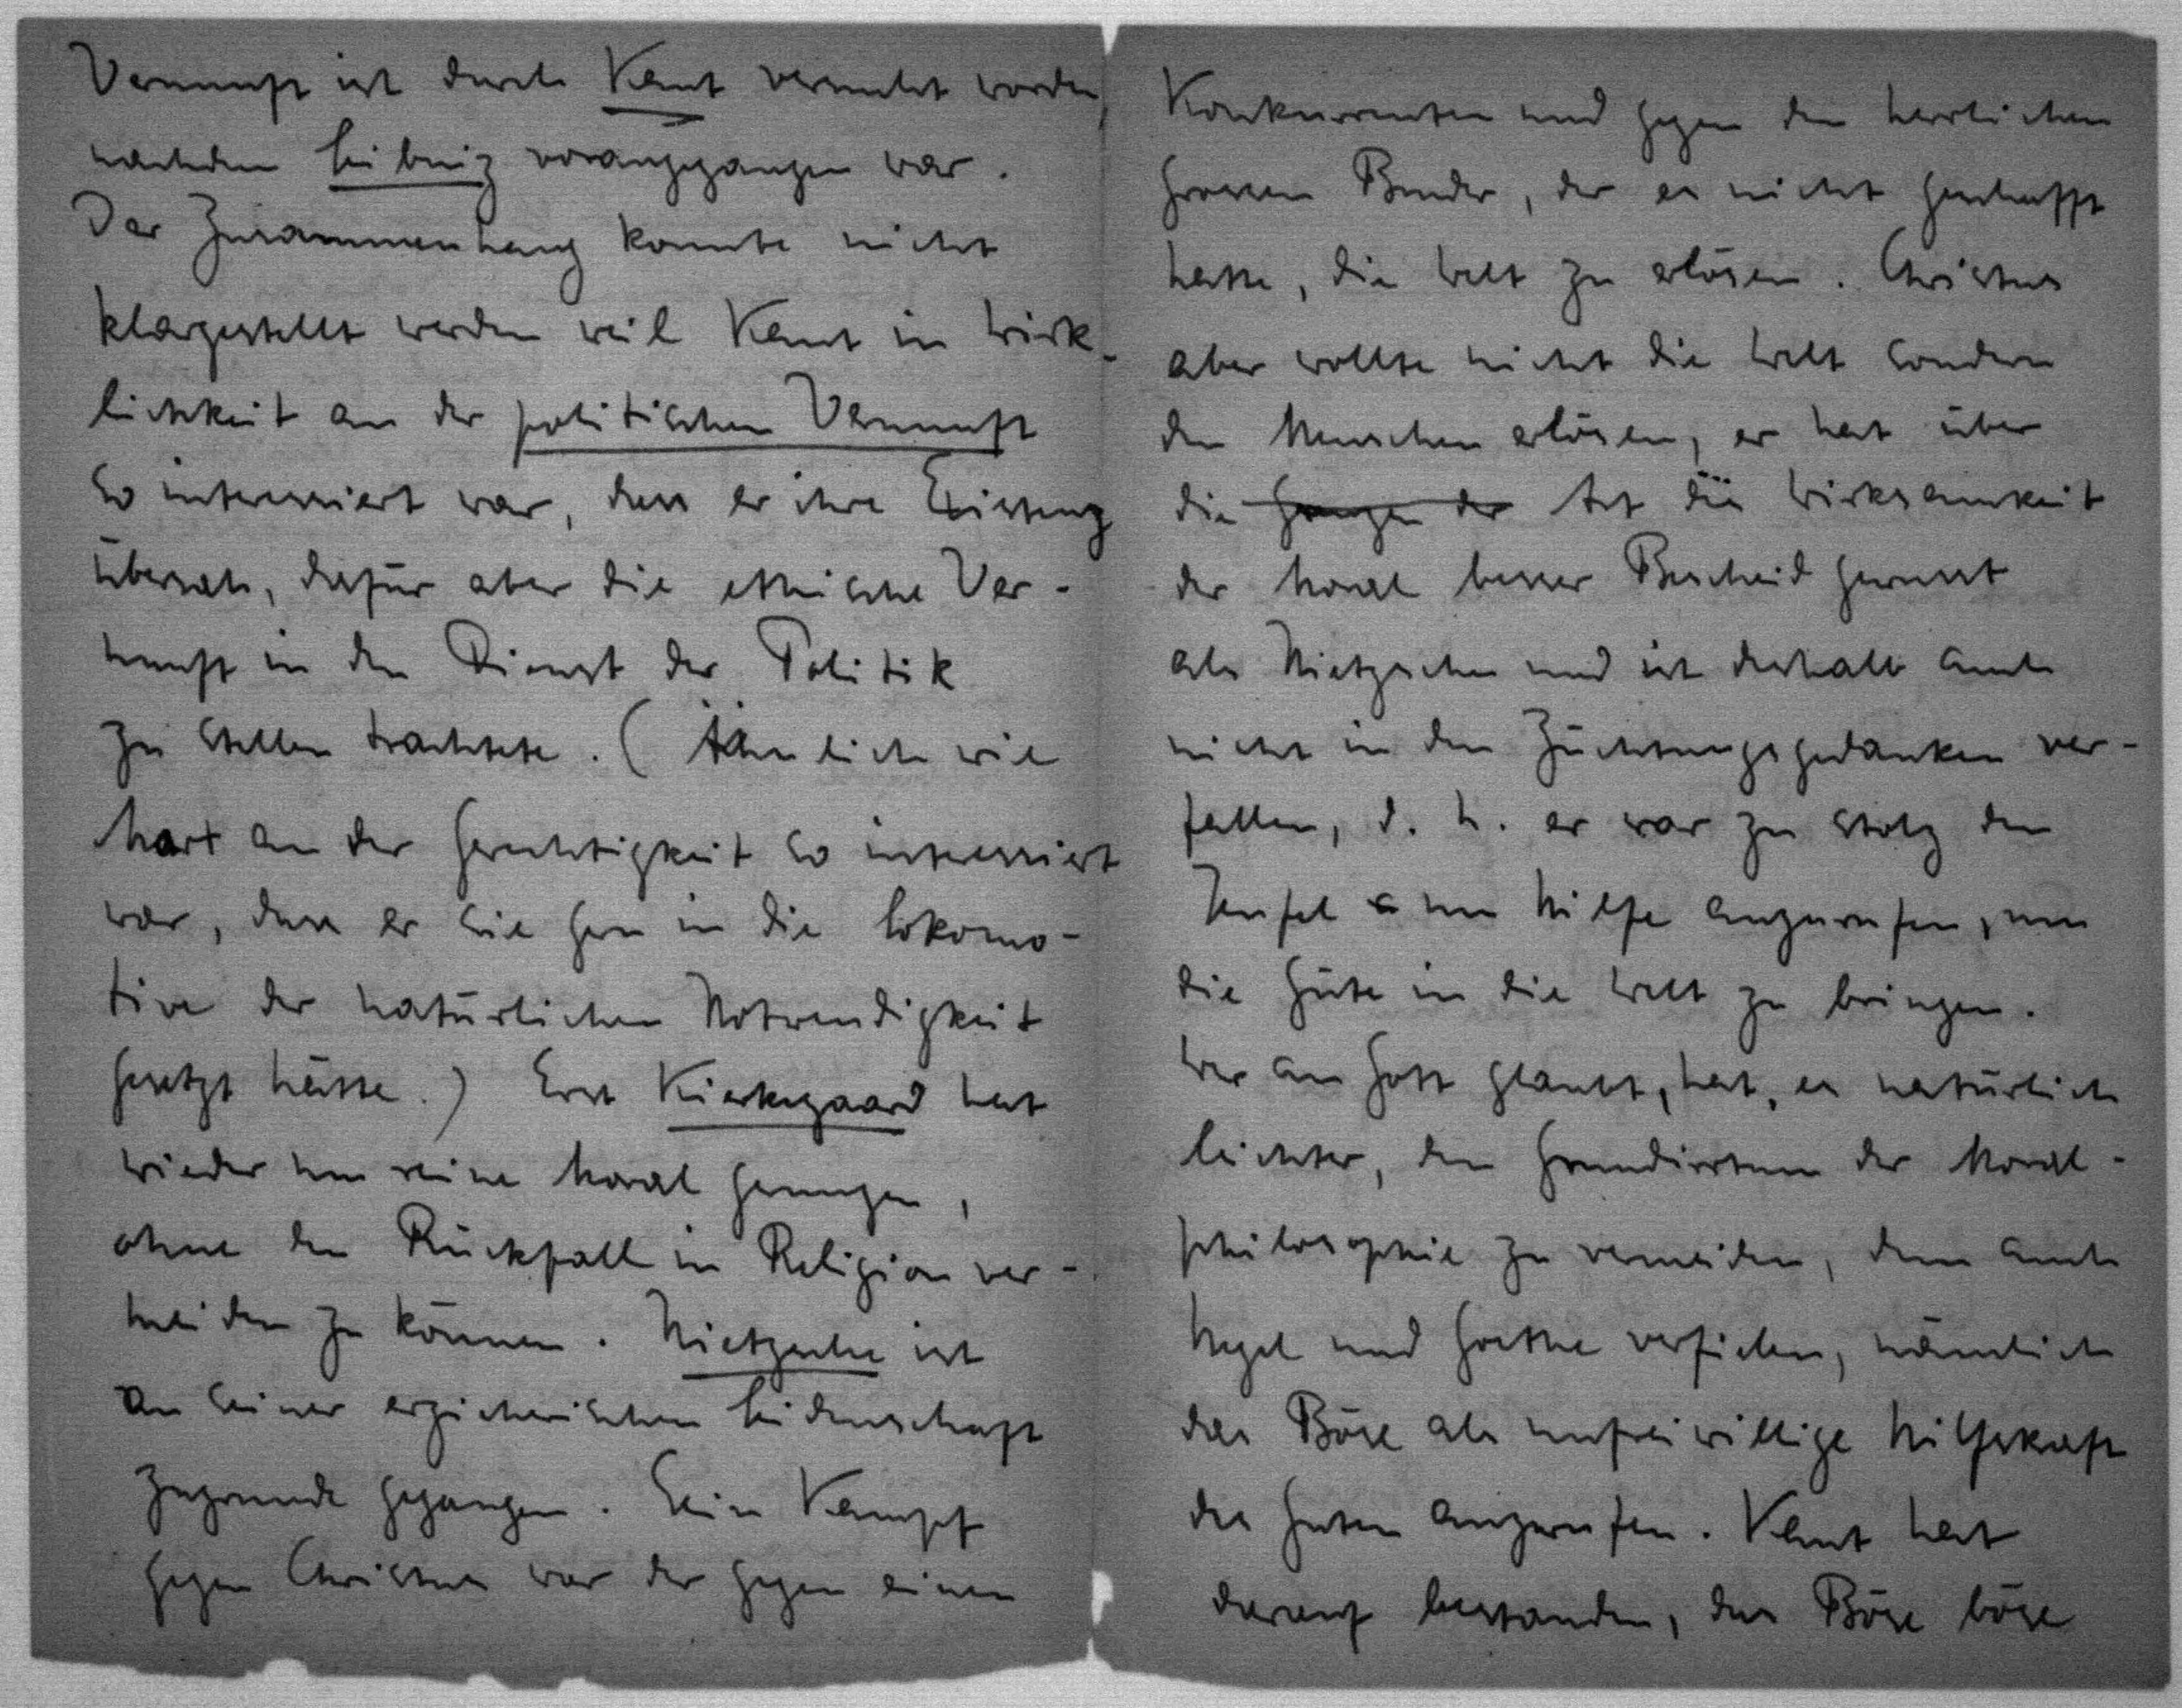 Vernunft ist durch Kant versucht worden,
nachdem Leibniz vorangegangen war.
Der Zusammenhang konnte nicht
klargestellt werden weil Kant in Wirk-
lichkeit an der politischen Vernunft
so interessiert war, dass er ihre Existenz
übersah, dafür aber die ethische Ver-
nunft in den Dienst der Politik
zu stellen trachtete. (Ähnlich wie
Marx an der Gerechtigkeit so interessiert
war, dass er sie gern in die Lokomo-
tive der natürlichen Notwendigkeit
gesetzt hätte.) Erst Kierkegaard hat
wieder um reine Moral gerungen,
ohne den Rückfall in Religion ver-
meiden zu können. Nietzsche ist
an seiner erzieherischen Leidenschaft
zugrunde gegangen. Sein Kampf
gegen Christus war der gegen einen
Konkurrenten und gegen den herrlichen
grossen Bruder, der es nicht geschafft
hatte, die Welt zu erlösen. Christus
aber wollte nicht die Welt sondern
den Menschen erlösen, er hat über
die Grenzen der Art die Wirksamkeit
der Moral besser Bescheid gewusst
als Nietzsche und ist deshalb auch
nicht in den Züchtungsgedanken ver-
fallen, d. h. er war zu stolz den
Teufel um Hilfe anzurufen, um
die Güte in die Welt zu bringen.
Wer an Gott glaubt, hat es natürlich
leichter, den Grundirrtum der Moral-
philosophie zu vermeiden, dem auch
Hegel und Goethe verfielen, nämlich
das Böse als unfreiwillige Hilfskraft
des Guten anzurufen. Kant hat
darauf bestanden, das Böse böse